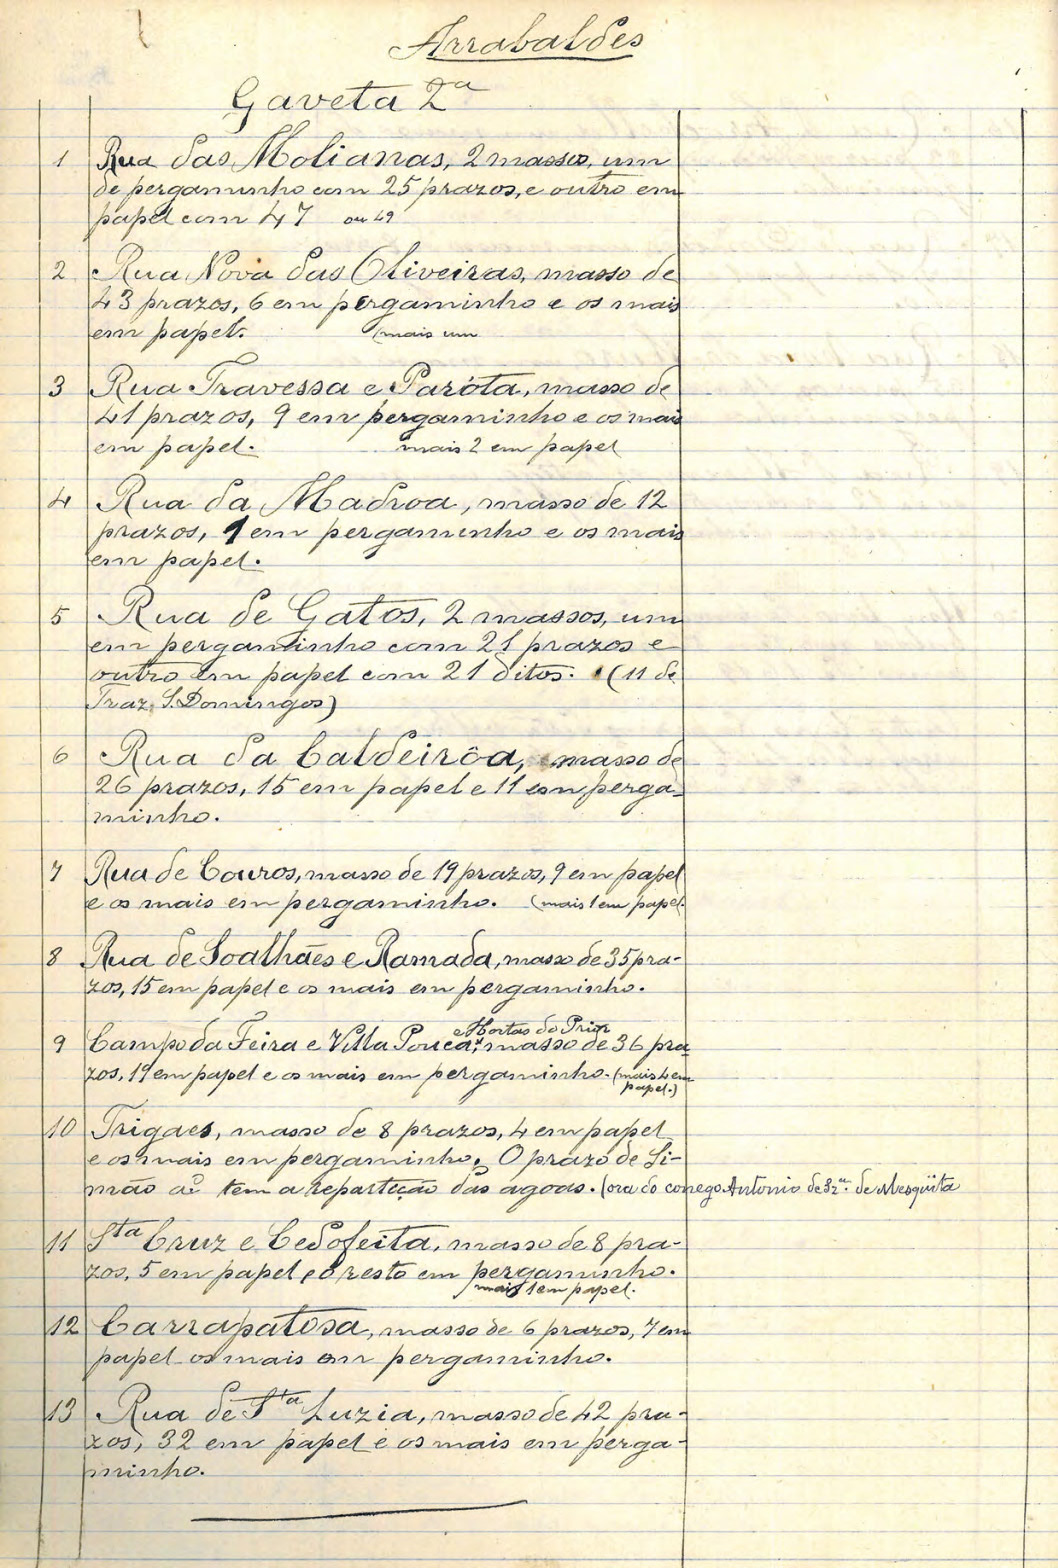 Arrabaldes
Gaveta 2ª
1 Rua das Molianas, 2 massos, um
de pergaminho com 25 prazos, e outro em
papel com 47 ou 49
2 Rua Nova das Oliveiras, masso de
43 prazos, 6 em pergaminho e os mais
em papel. (mais um
3 Rua Travessa e Parôta, masso de
41 prazos, 9 em pergaminho e os mais
em papel. mais 2 em papel
4 Rua da Madroa, masso de 12
prazos, 1 em pergaminho e os mais
em papel.
5 Rua de Gatos, 2 massos, um
em pergaminho com 21 prazos e
outro em papel com 21 ditos. (11 de
Traz S. Domingos)
6 Rua da Caldeirôa, masso de
26 prazos, 15 em papel e 11 em perga-
minho.
7 Rua de Couros, masso de 19 prazos, 9 em papel
e os mais em pergaminho. (mais 1 em papel.
8 Rua de Soalhães e Ramada, masso de 35 pra-
zos, 15 em papel e os mais em pergaminho.
e Hortas do Prior
9 Campo da Feira e Villa Pouca, masso de 36 pra-
zos, 19 em papel e os mais em pergaminho. (mais 4 em
papel.)
10 Trigaes, masso de 8 prazos, 4 em papel
e os mais em pergaminho. O prazo de Si-
mão tem a repartição das agoas. (ora do conego Antonio de de Mesqüita
11 Sta Cruz e Cedofeita, masso de 8 pra-
zos, 5 em papel, e o resto em pergaminho.
mais 1 em papel.
12 Carrapatosa, masso de 6 prazos, 7 em
papel os mais em pergaminho.
13 Rua de Sta Luzia, masso de 42 pra-
zos, 32 em papel e os mais em perga-
minho.